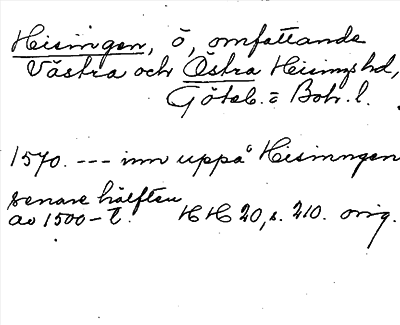 Hisingen, ö, omfattande
Västra och Östra Hisings hd,
Göteb. = Boh. l.
1570. --- inn uppå Hisinngen
senare hälften
av 1500-t. HH 20, s. 210. orig.